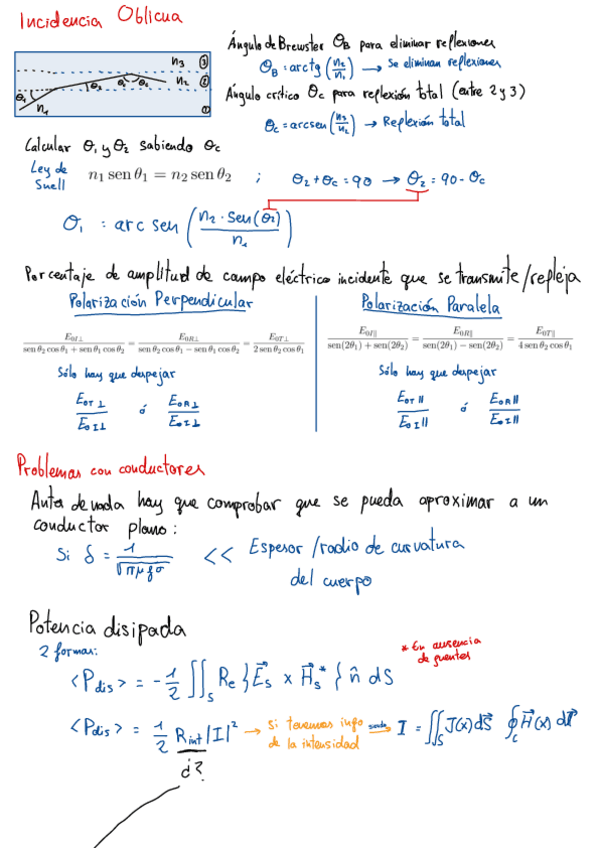 Incidencia Oblicua
Ángulo de Brewster θB para eliminar reflexiones
θB = arctg (n2/n1) → Se eliminan reflexiones
Ángulo crítico θc para reflexión total (entre 2 y 3)
θc = arcsen (n3/n2) → Reflexión total
n3 ③
n2 ②
θ2 θc θc
θ1 n1 ①
Calcular θ1 y θ2 sabiendo θc
Ley de Snell n1 sen θ1 = n2 sen θ2 ; θ2 + θc = 90 → θ2 = 90 - θc
θ1 = arc sen (n2 · sen(θ2) / n1)
Porcentaje de amplitud de campo eléctrico incidente que se transmite/refleja
Polarización Perpendicular
E0I⊥ / (sen θ2 cos θ1 + sen θ1 cos θ2) = E0R⊥ / (sen θ2 cos θ1 − sen θ1 cos θ2) = E0T⊥ / (2 sen θ2 cos θ1)
Sólo hay que despejar
E0T⊥ / E0I⊥ ó E0R⊥ / E0I⊥
Polarización Paralela
E0I∥ / (sen(2θ1) + sen(2θ2)) = E0R∥ / (sen(2θ1) − sen(2θ2)) = E0T∥ / (4 sen θ2 cos θ1)
Sólo hay que despejar
E0T∥ / E0I∥ ó E0R∥ / E0I∥
Problemas con conductores
Antes de nada hay que comprobar que se pueda aproximar a un
conductor plano:
Si δ = 1/√(πμfσ) << Espesor / radio de curvatura
del cuerpo
Potencia disipada
2 formas:
* En ausencia
de fuentes
<Pdis> = - 1/2 ∬S Re {E⃗s × H⃗s*} n̂ dS
<Pdis> = 1/2 Rint |I|² → Si tenemos info
de la intensidad
→ I = ∬S J(x) dS⃗ ∮C H⃗(x) dl⃗
¿?